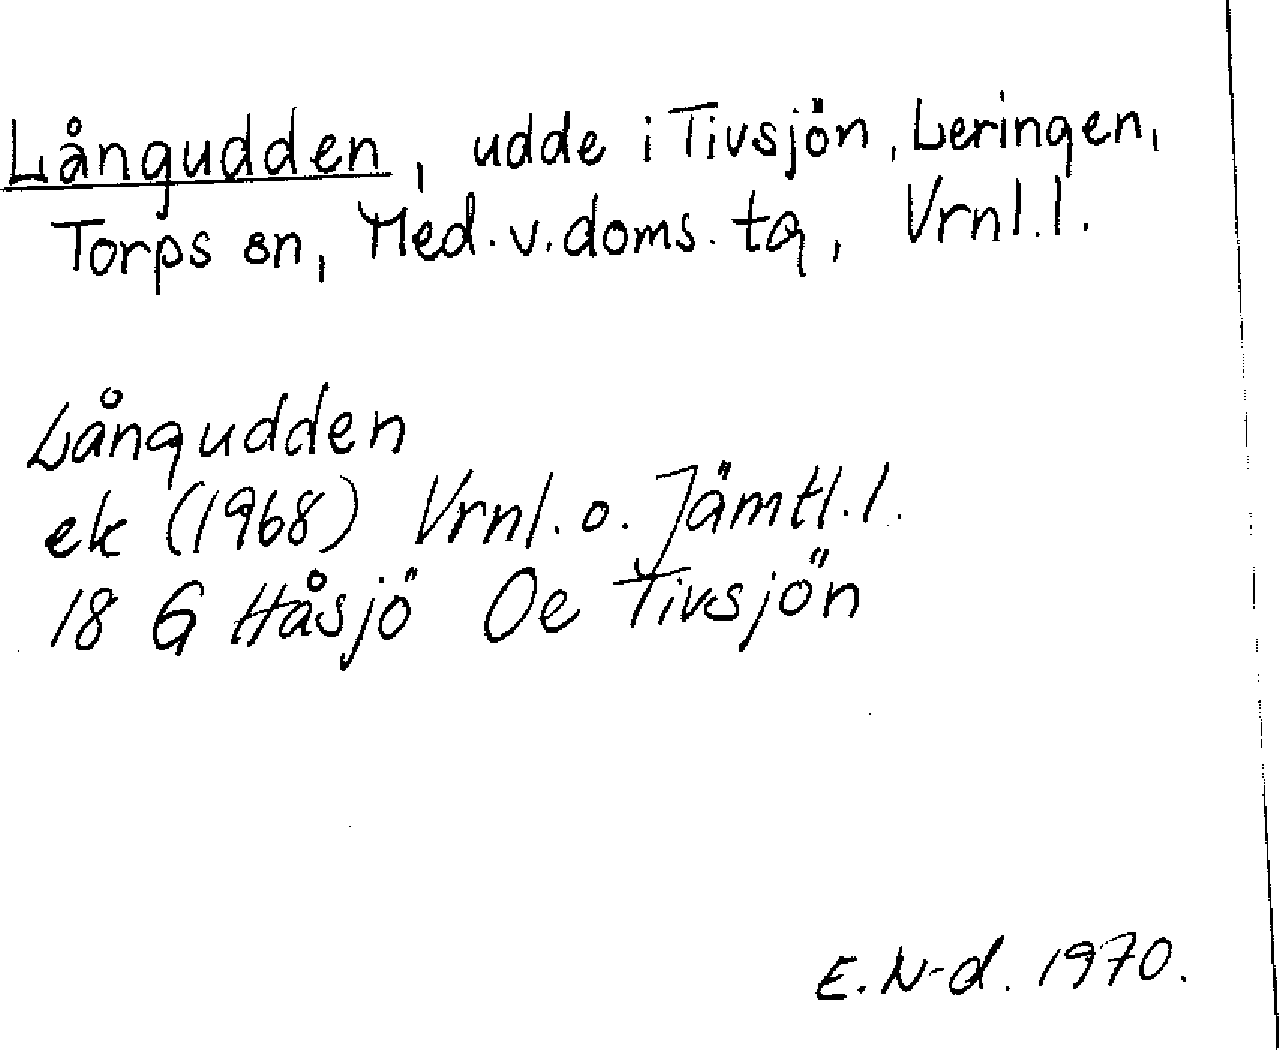 Långudden, udde i Tivsjön, Leringen,
Torps sn, Med. v. doms. tg, Vrnl. l.
Långudden
ek (1968) Vrnl. o. Jämtl. l.
18 G Håsjö Oe Tivsjön
E. N-d. 1970.